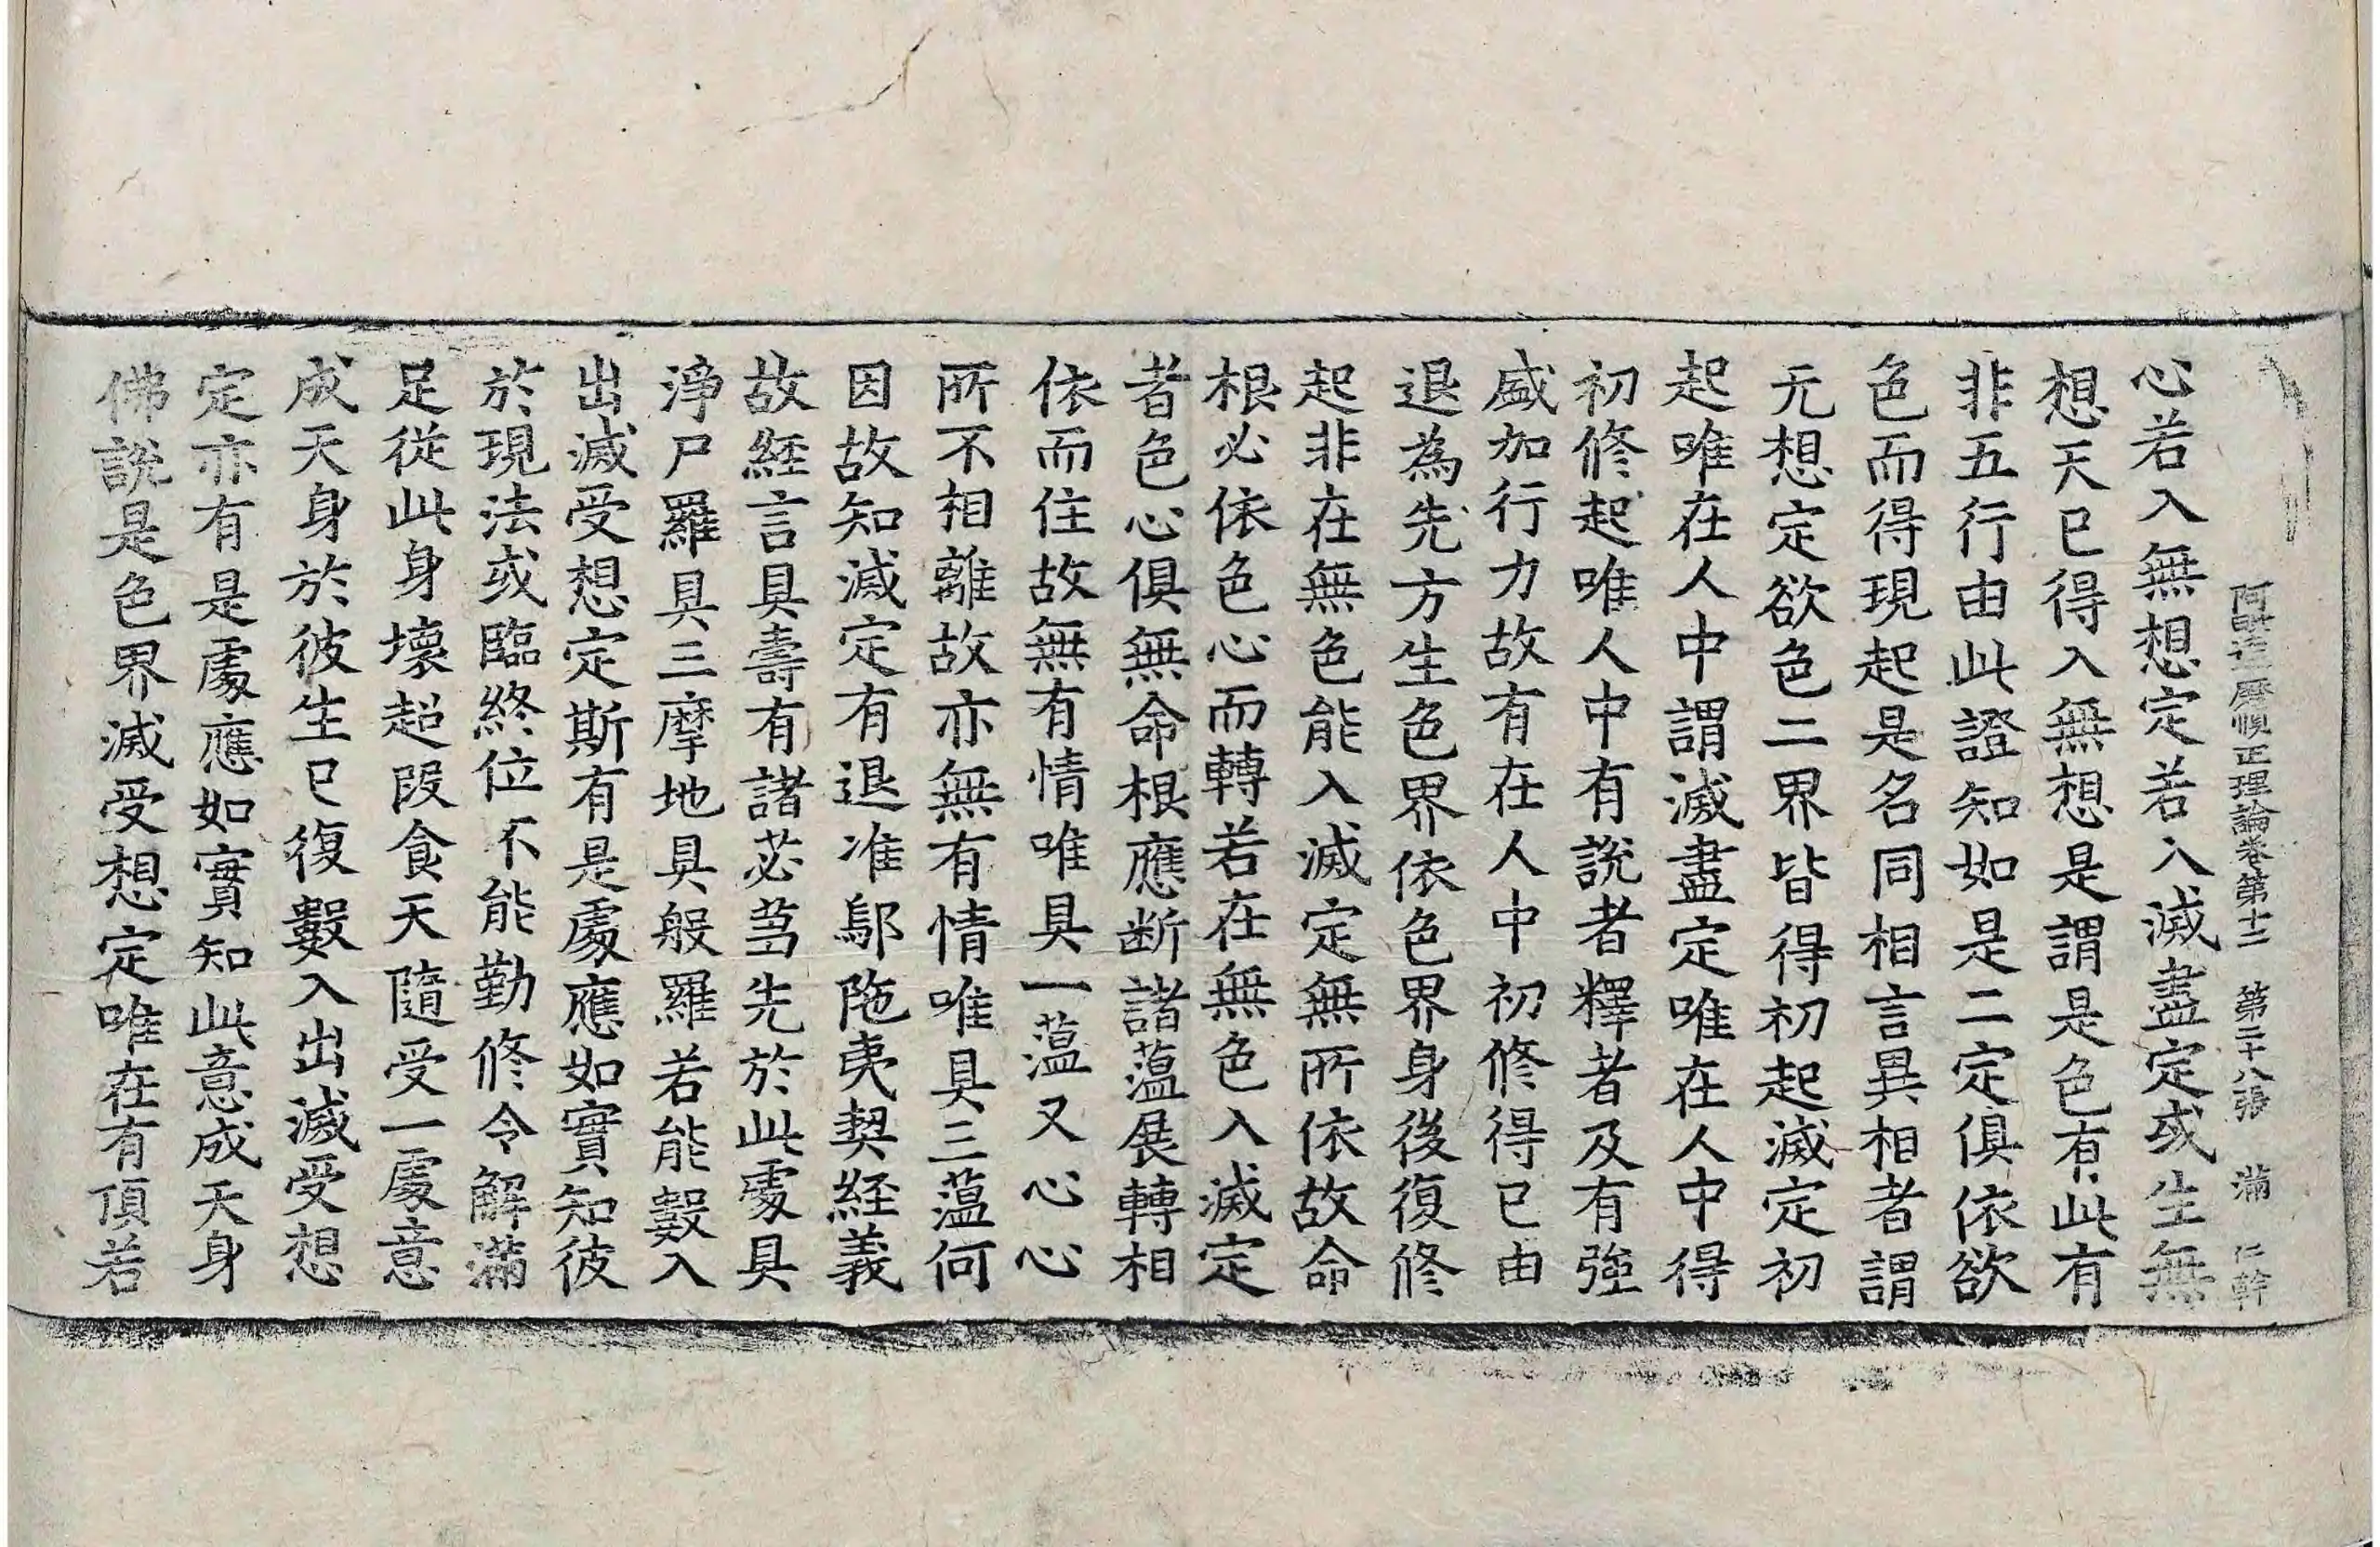 阿毗達磨順正理論卷第十二 第二十八張 滿 仁幹
心若入無想定若入滅盡定或生無
想天已得入無想是謂是色有此有
非五行由此證知如是二定俱依欲
色而得現起是名同相言異相者謂
无想定欲色二界皆得初起滅定初
起唯在人中謂滅盡定唯在人中得
初修起唯人中有說者釋者及有強
盛加行力故有在人中初修得已由
退為先方生色界依色界身後復修
起非在無色能入滅定無所依故命
根必依色心而轉若在無色入滅定
者色心俱無命根應断諸薀展轉相
依而住故無有情唯具一薀又心心
所不相離故亦無有情唯具三薀何
因故知滅定有退准鄔陁夷契経義
故経言具壽有諸苾芻先於此處具
淨尸羅具三摩地具般羅若能數入
出滅受想定斯有是處應如實知彼
於現法或臨終位不能勤修令解滿
足從此身壞超段食天隨受一處意
成天身於彼生已復數入出滅受想
定亦有是處應如實知此意成天身
佛說是色界滅受想定唯在有頂若